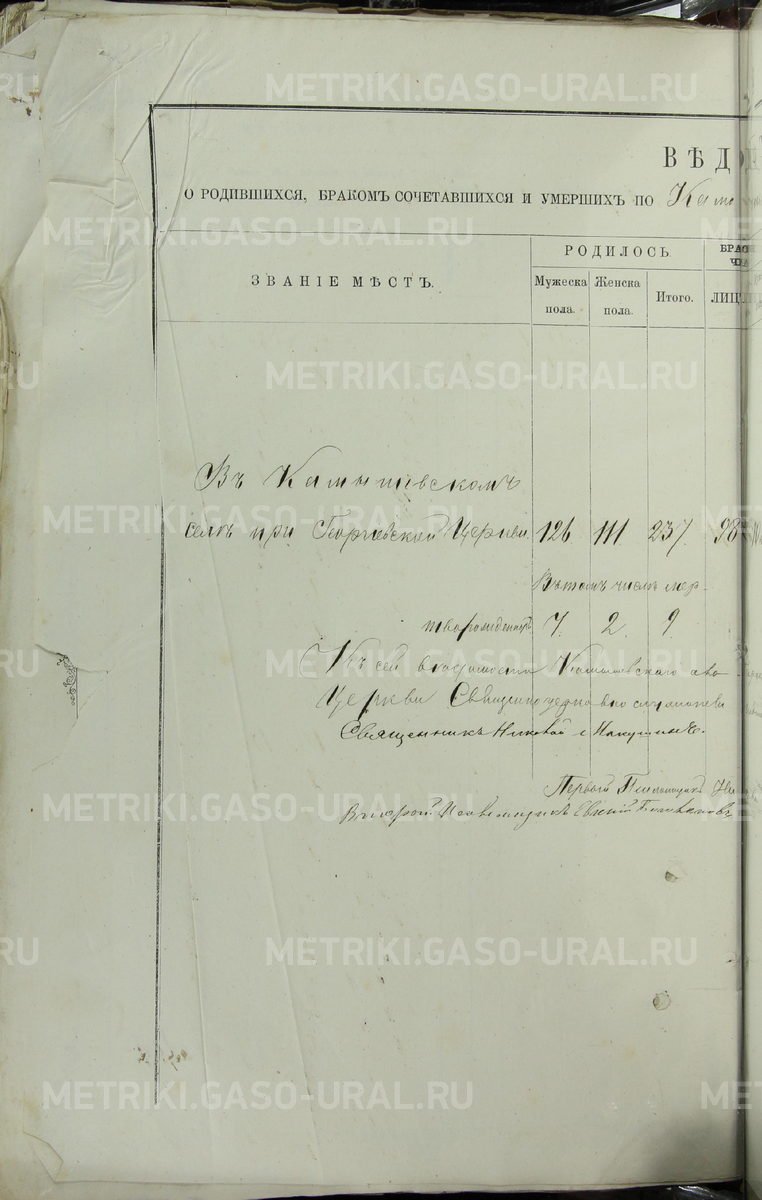 METRIKI.GASO-URAL.RU
ВѢДО
О РОДИВШИХСЯ, БРАКОМЪ СОЧЕТАВШИХСЯ И УМЕРШИХЪ ПО Камы
ЗВАНІЕ МѢСТЪ.
РОДИЛОСЬ.
БРАК
Мужеска пола.
Женска пола.
Итого.
ЛИЦ
Въ Камышевскомъ
селѣ при Георгіевской Церкви 126 111 237. 98
Въ томъ числѣ мер-
творожденныхъ 7. 2. 9
Къ сей вѣдомости Камышевскаго
Церкви Священно
Священникъ Николай
Первый Псаломщикъ
Второй Псаломщикъ Евгеній